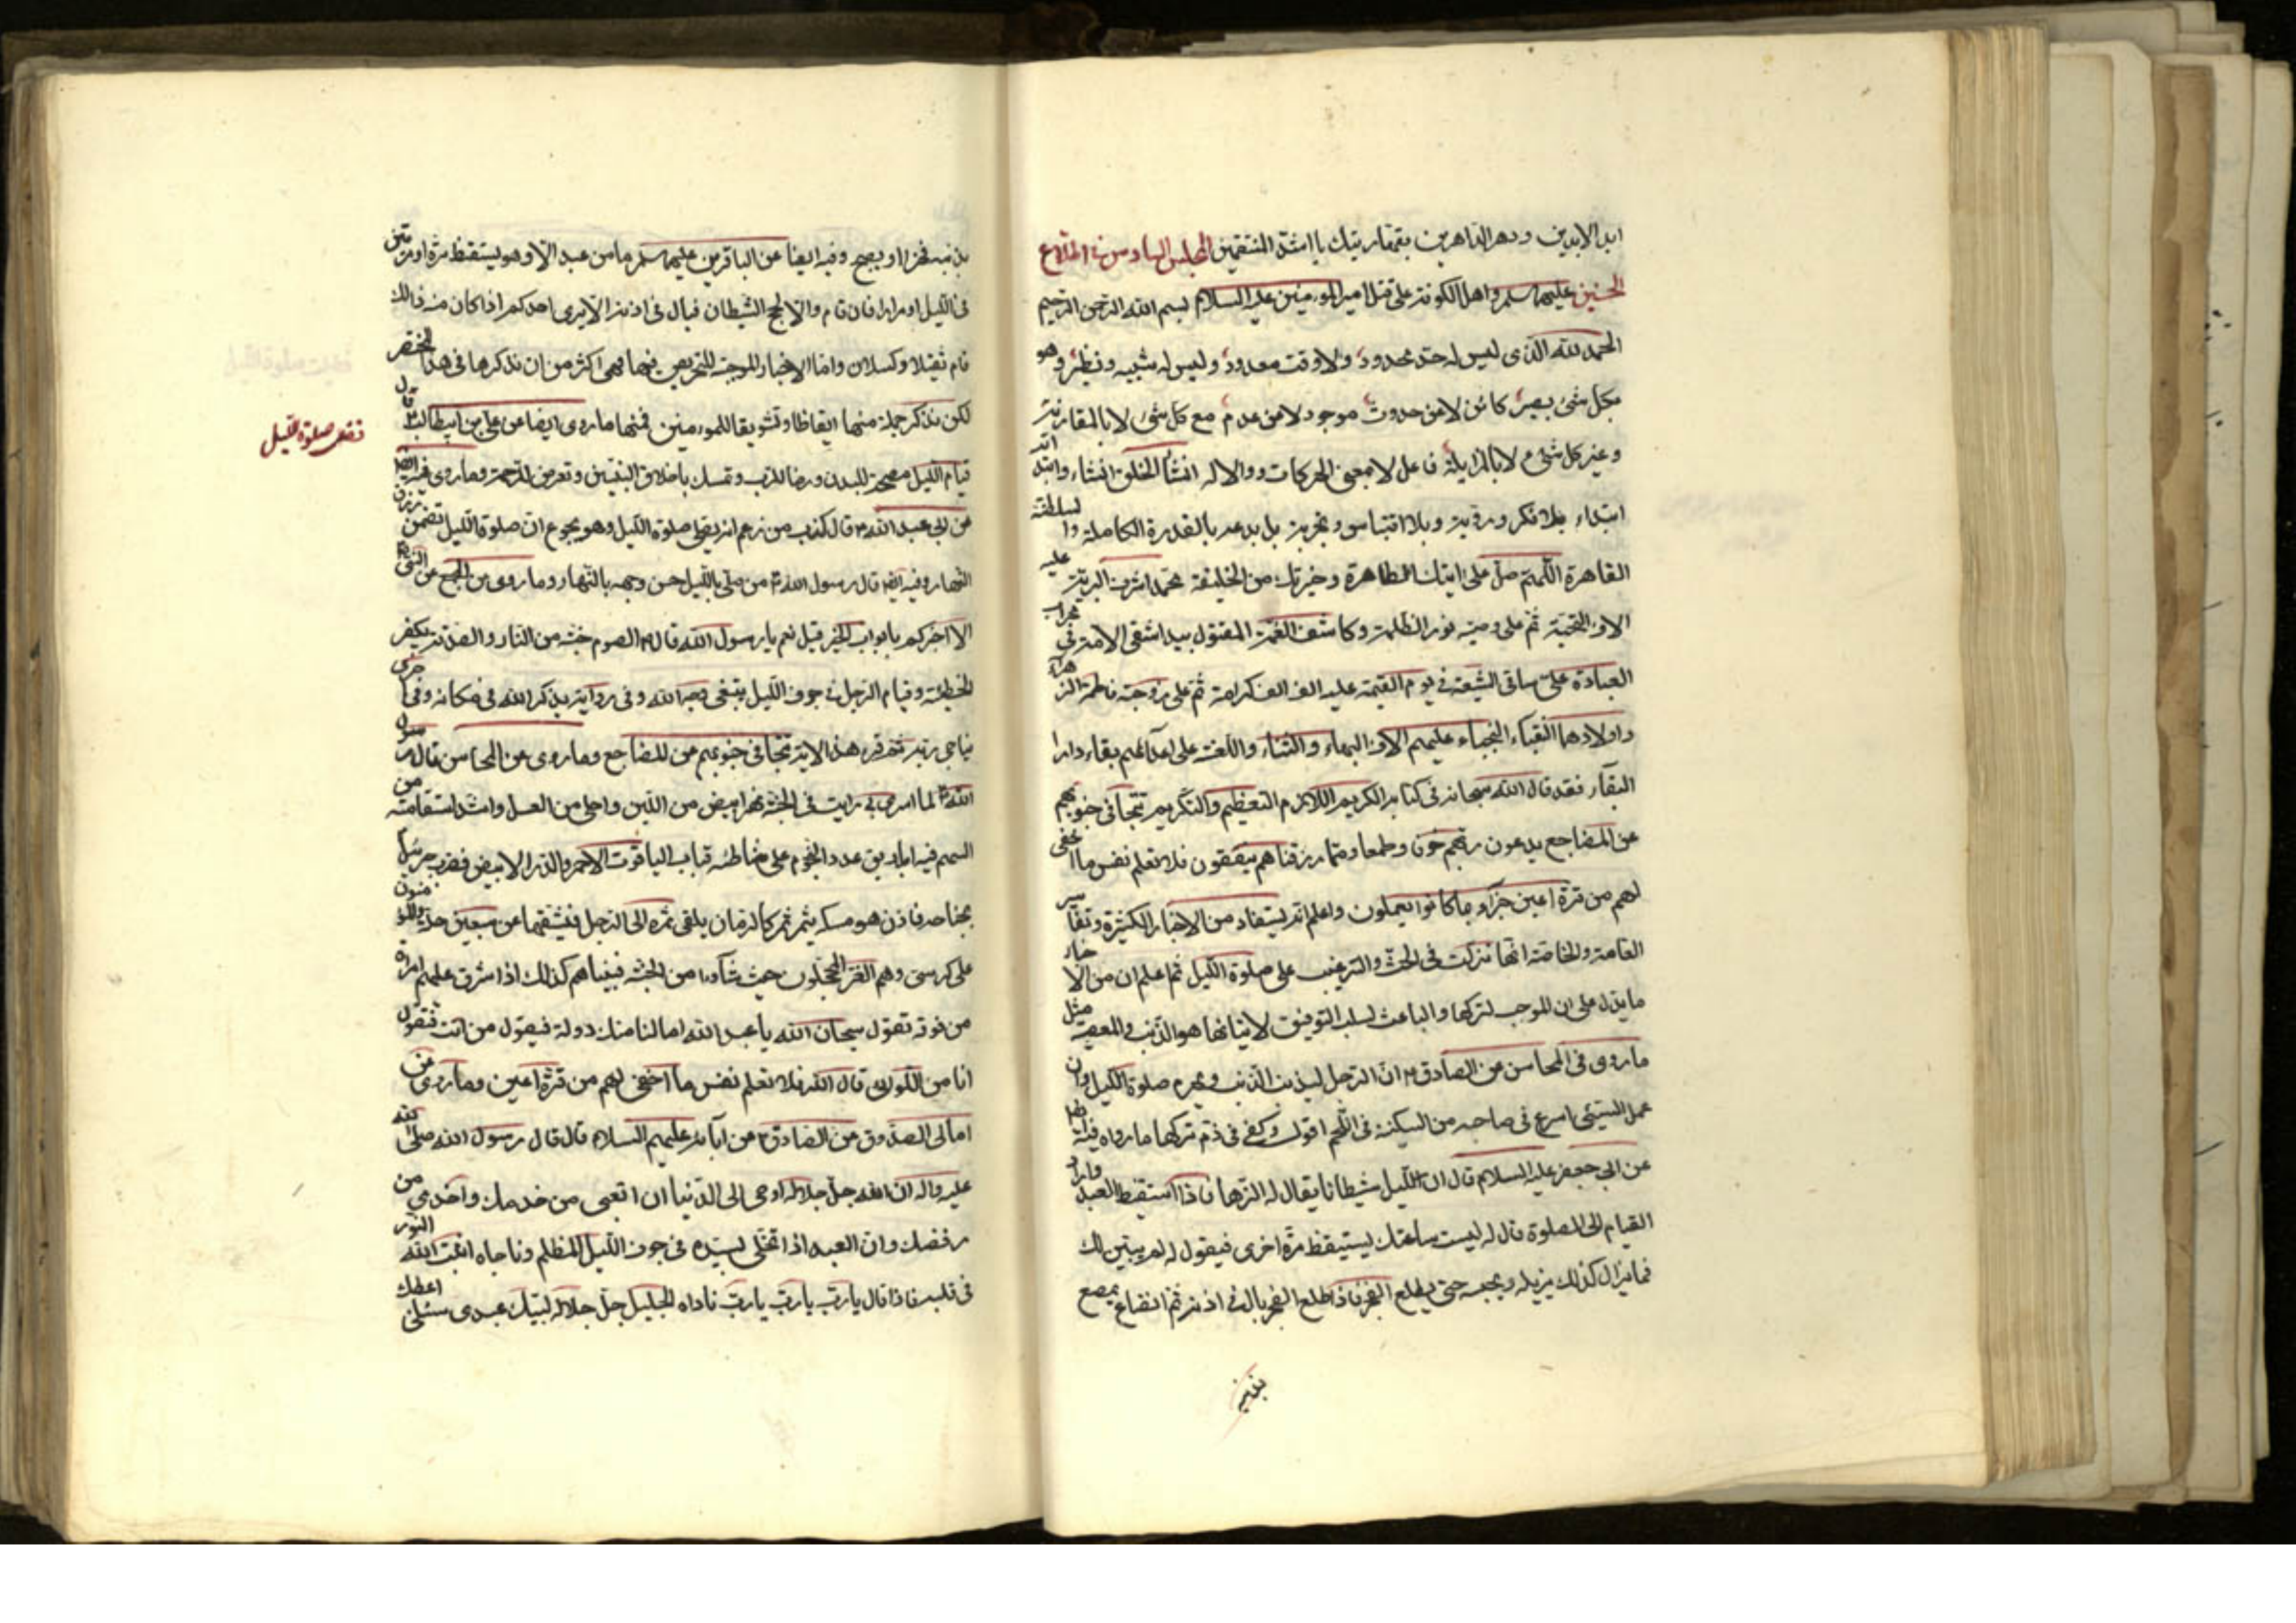 ابد الابدين ودهر الداهرين بقهاريتك يا اشد المنتقمين المجلس السادس في اطلاع
الحسنين عليهما سلم واهل الكوفة على قتل امير المؤمنين عليه السلام بسم الله الرحمن الرحيم
الحمد لله الذى ليس له حد محدود ولا وقت معدود وليس له شبيه ونظير وهو
بكل شئ بصير كائن لا من حدوث موجود لا من عدم مع كل شئ لا بالمقارنة
وغير كل شئ لا بالمزايلة فاعل لا بمعنى الحركات والاله انشأ الخلق انشاء وابتداه
ابتداء بلا فكر وروية وبلا اقتباس وتجربة بل بدعه بالقدرة الكاملة والسلطنة
القاهرة اللهم صل على ايتك الطاهرة وخيرتك من الخليقة محمد اشرف البرية عليه
الاف التحية ثم على وصيه نور الظلمة وكاشف الغمة المقتول بيد اشقى الامة في محراب
العبادة على ساقى الشيعة في يوم القيمة عليه الف الف كرامة ثم على زوجته فاطمة الزهراء
واولادهما النقباء النجباء عليهم الاف البهاء والثناء واللعنة على اعدائهم بقاء دار
البقآء فقد قال الله سبحانه فى كتابه الكريم اللازم التعظيم والتكريم تتجافى جنوبهم
عن المضاجع يدعون ربهم خوفا وطمعا ومما رزقناهم ينفقون فلا تعلم نفس ما اخفى
لهم من قرة اعين جزآء بما كانوا يعملون واعلم انه يستفاد من الاخبار الكثيرة وتفاسير
العامة والخاصة انها نزلت فى الحث والترغيب على صلوة الليل ثم اعلم ان من الاخبار
ما يدل على ان الموجب لتركها والباعث لسلب التوفيق لاتيانها هو الذنب والمعصية مثل
ما روى فى المحاسن عن الصادق ع ان الرجل ليذنب الذنب فيحرم صلوة الليل وان
عمل السيئى اسرع فى صاحبه من السكين فى اللحم اقول وكفى فى ذم تركها ما رواه فيه ايضا
عن ابى جعفر عليه السلام قال ان لليل شيطانا يقال له الزها فاذا استيقظ العبد واراد
القيام الى الصلوة قال له ليست ساعتك ليستيقظ مرة اخرى فيقول له لم يبين لك
فما يزال كذلك يزيله ويحبسه حتى يطلع الفجر فاذا طلع الفجر بال فى اذنه ثم انصاع يمصع
بذنبه
بذنبه فخرا ويصيح وفيه ايضا عن الباقرين عليهما سلم ما من عبد الا وهو يستيقظ مرة او مرتين
فى الليل او مرارا فان قام والا فحج الشيطان فبال فى اذنه الا يرى احدكم اذا كان منه ذالك
قام ثقيلا وكسلان واما الاخبار الموجبة للتحريص فيها فهى اكثر من ان نذكرها فى هذا المختصر
لكن نذكر جملة منها ايقاظا وتشويقا للمؤمنين فمنها ما روى ايضا عن على بن ابيطالب ع قال
فضل صلوة الليل
قيام الليل مصحة للبدن ورضا للرب وتمسك باخلاق النبيين وتعرض للرحمة وما روى فيه ايضا
عن ابى عبد الله ع قال كذب من زعم انه يصلى صلوة الليل وهو يجوع ان صلوة الليل تضمن رزق
النهار وفيه ايضا قال رسول الله ص من صلى بالليل حسن وجهه بالنهار وما روى عن المجمع عن النبى ص
الا اخبركم بابواب الخير قيل نعم يا رسول الله قال ص الصوم جنة من النار والصدقة يكفر
الخطيئة وقيام الرجل فى جوف الليل يبتغى وجه الله وفى رواية يذكر الله فى مكانه وفى اخرى
يناجى ربه ثم قرء هذه الاية تتجافى جنوبهم عن المضاجع وما روى عن المحاسن قال رسول
الله ص لما اسرى بى رايت فى الجنة نهرا ابيض من اللبن واحلى من العسل واشد استقامة من
السهم فيه اباريق عدد النجوم على شاطئه قباب الياقوت الاحمر والدر الابيض فضرب جبرئيل
بجناحه فاذن هو مسك يثمر ثمر كالرمان يلقى ثمره الى الرجل فيشقها عن سبعين حلة والمؤمنون
على كرسى وهم الغر المحجلون حيث شاؤا من الجنة فبيناهم كذلك اذا شرق عليهم امراة
من فوقه تقول سبحان الله يا عبد الله اما لنا منك دولة فيقول من انت فتقول
انا من اللواتى قال الله فلا تعلم نفس ما اخفى لهم من قرة اعين وما روى عن
امالى الصدوق عن الصادق ع من آبائه عليهم السلام قال قال رسول الله صلى الله
عليه واله ان الله جل جلاله اوحى الى الدنيا ان اتعبى من خدمك واخدمى من
رفضك وان العبد اذا تخلى لسيده فى جوف الليل المظلم وناجاه اثبت الله النور
فى قلبه فاذا قال يا رب يا رب يا رب ناداه الجليل جل جلاله لبيك عبدى سلنى اعطك